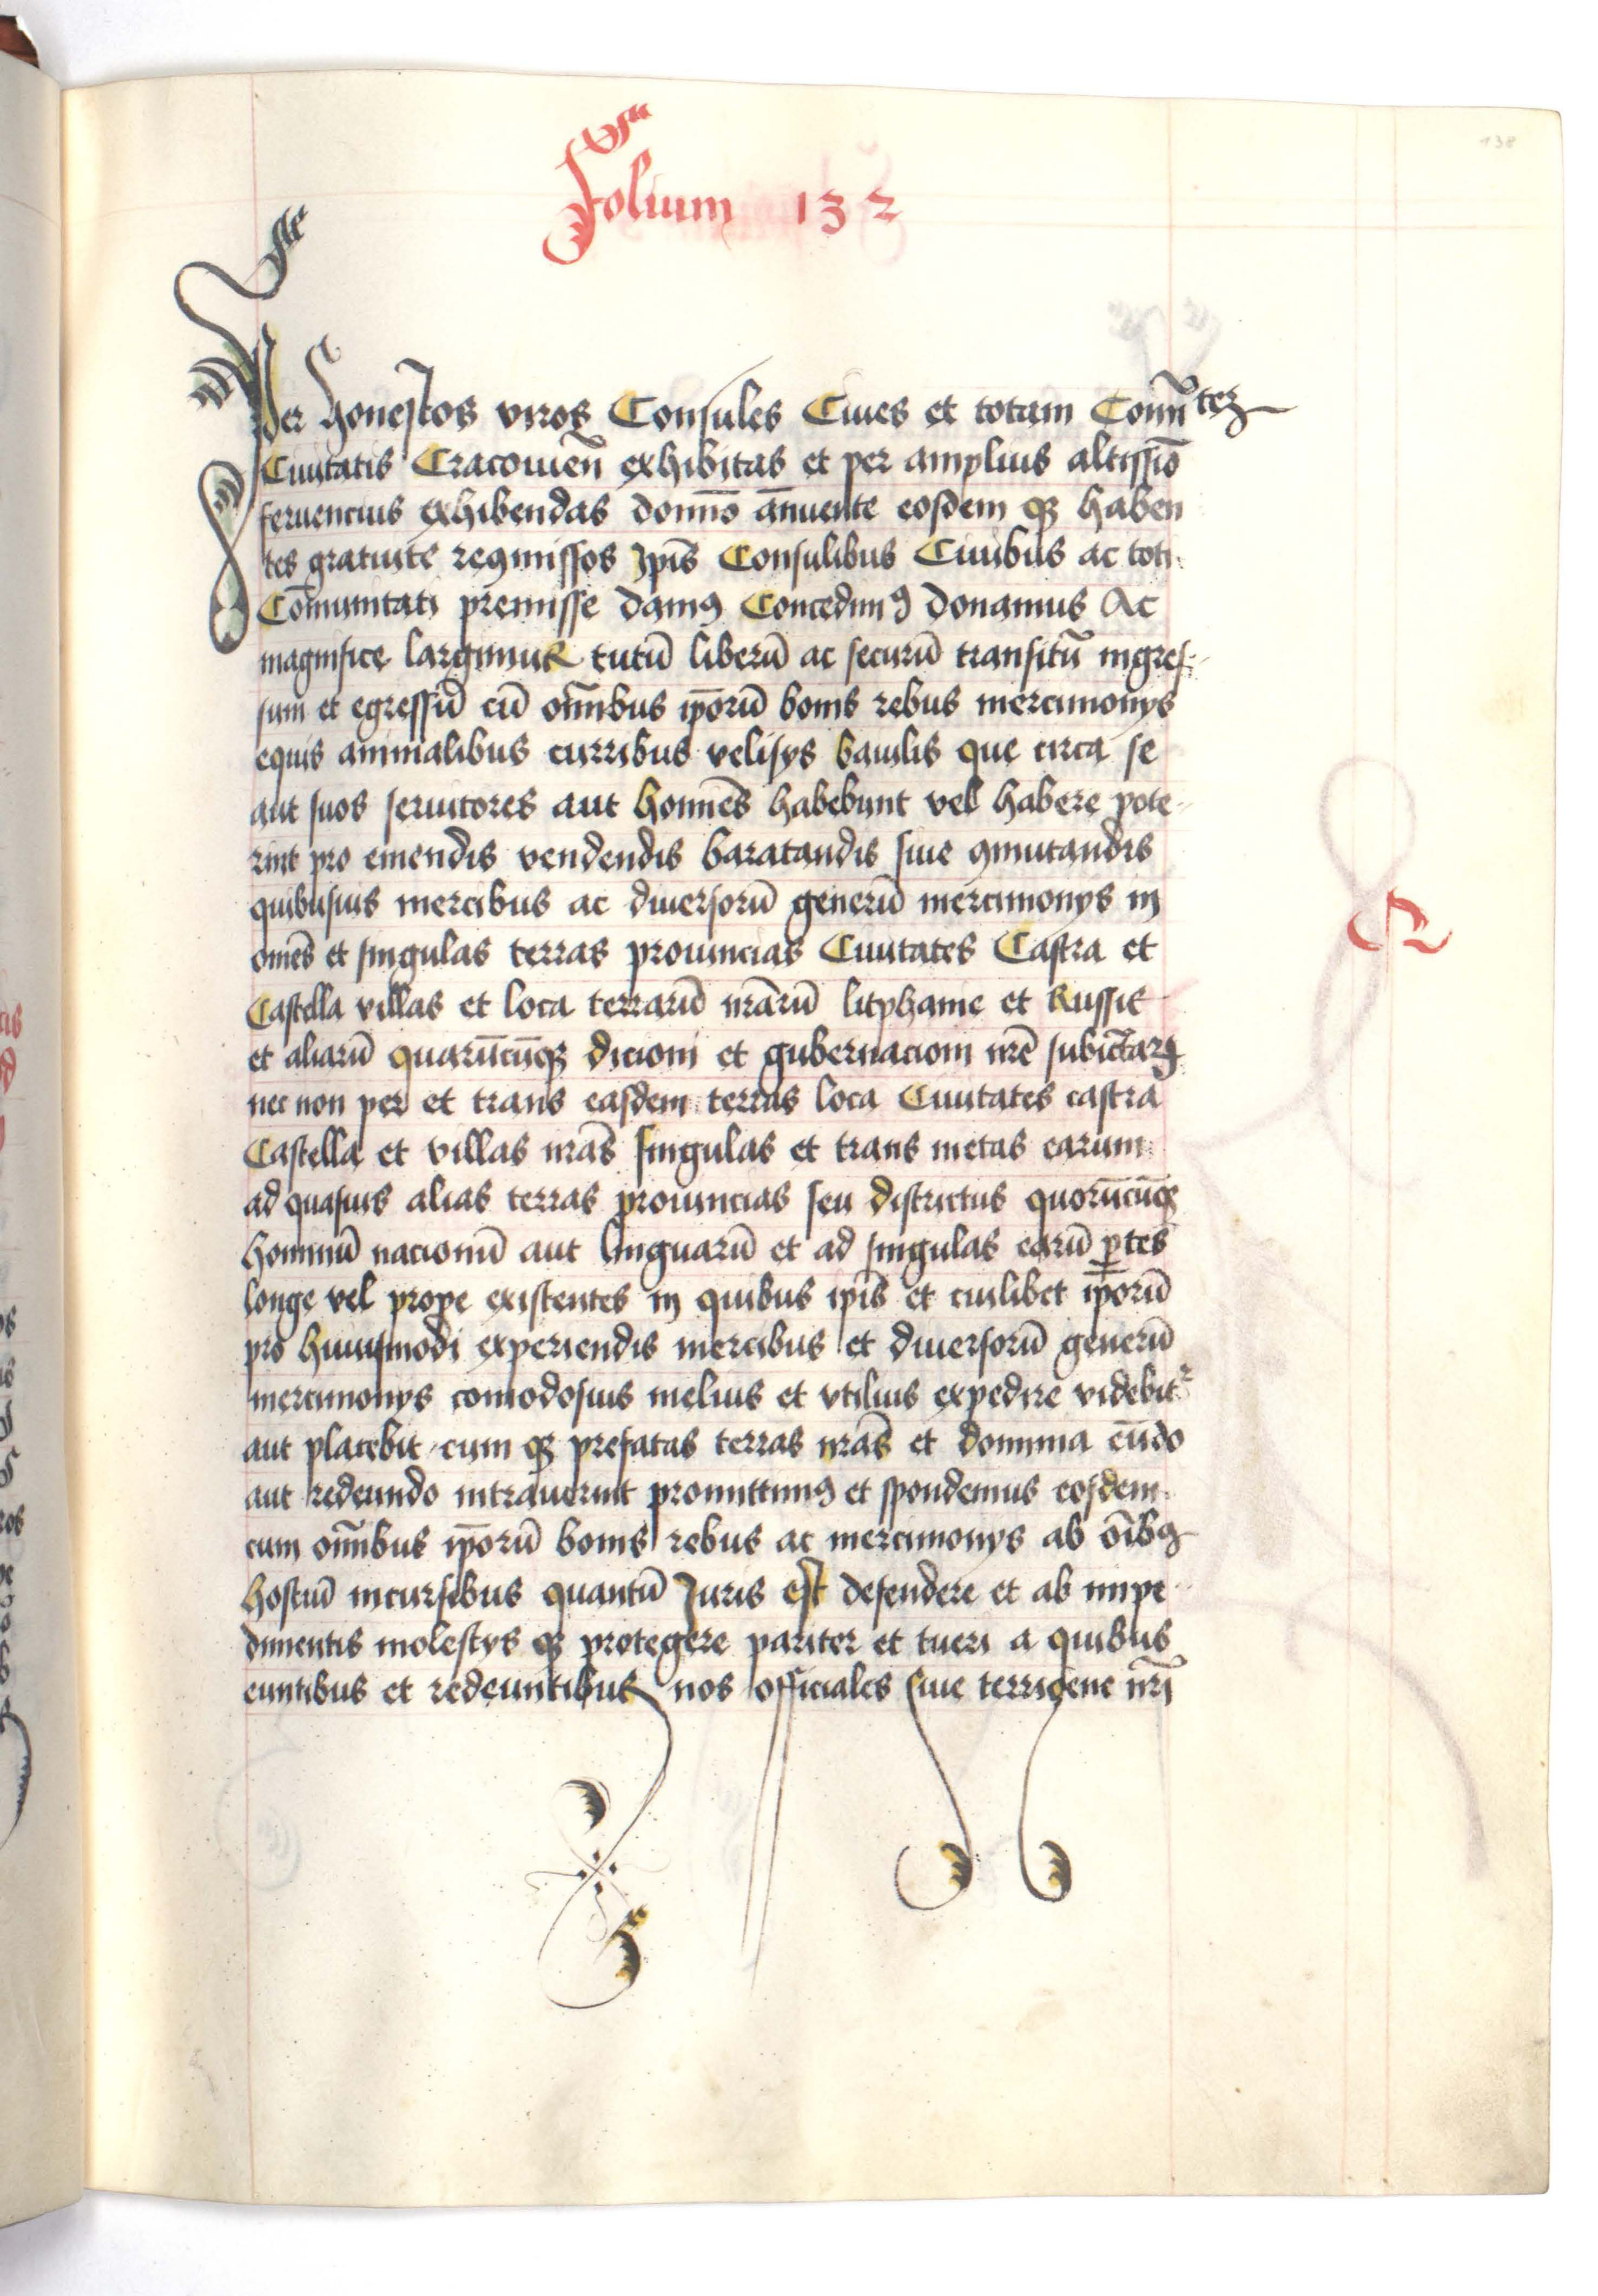 138
Folium 132
Per honestos viros Consules Ciues et totam Com̄tez
Ciuitatis Cracouien̄ exhibitas et per amplius altissīo
feruencius exhibendas domīno annuente eosdem qꝫ haben
tes gratuite reꝯmissos Ipīs Consulibus Ciuibus ac toti
Cōmunitati premisse damꝯ Concedimꝯ donamus Ac
magnifice largimur tutū liberū ac securū transitū ingres-
sum et egressū cū om̄ibus ip̄orū bonis rebus mercimonijs
equis animalibus curribus velisijs baiulis que circa se
aut suos seruitores aut homīes habebunt vel habere pote-
rint pro emendis vendendis baratandis siue ꝯmutandis
quibusuis mercibus ac diuersorū generū mercimonijs in
omēs et singulas terras prouincias Ciuitates Castra et
Castella villas et loca terrarū nr̄arū litphanie et Russie
et aliarū quarūcūqꝫ dicioni et gubernacioni nrē subiectarꝝ
nec non per et trans easdem terras loca Ciuitates castra
Castella et villas nrās singulas et trans metas earum
ad quasuis alias terras prouincias seu districtus quorūcūqꝫ
hominū nacionū aut linguarū et ad singulas earū ꝑtes
longe vel prope existentes in quibus ipīs et cuilibet ip̄orū
pro huiusmodi experiendis mercibus et diuersorū generū
mercimonijs comodosius melius et vtilius expedire videbit᷑
aut placebit cum qꝫ prefatas terras nrās et dominia eūdo
aut redeundo intrauerint promittimꝯ et spondemus eosdem
cum om̄ibus ip̄orū bonis rebus ac mercimonijs ab oībꝯ
hostiū incursibus quantū Iuris est defendere et ab impe-
dimentis molestijs qꝫ protegere pariter et tueri a quibus
euntibus et redeuntibus nos officiales siue terrigene nrī